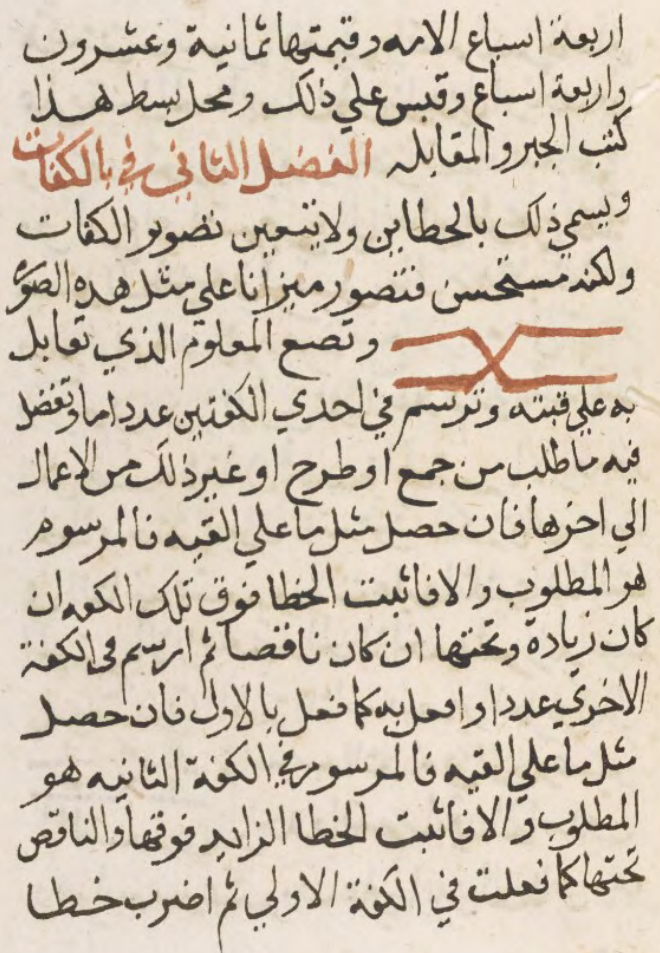 اربعة اسباع الامه وقيمتها ثمانية وعشرون
واربعة اسباع وقس علي ذلك ومحل بسط هذا
كتب الجبر والمقابله الفصل الثاني في بالكفات
ويسمي ذلك بالخطاين ولا يتعين تصوير الكفات
ولكنه مستحسن فتصور ميزانا علي مثل هذه الصورة
وتضع المعلوم الذي تقابل
به علي قبته وترسم في احدي الكفتين عددا ما وتفعل
فيه ما طلب من جمع او طرح او غير ذلك من الاعمال
الي اخرها فان حصل مثل ما علي القبه فالمرسوم
هو المطلوب والا فاثبت الخطا فوق تلك الكفه ان
كان زيادة وتحتها ان كان ناقصا ثم ارسم في الكفة
الاخري عددا وافعل به كما فعل بالاول فان حصل
مثل ما علي القبه فالمرسوم في الكفة الثانيه هو
المطلوب والا فاثبت الخطا الزايد فوقها والناقص
تحتها كما فعلت في الكفة الاولي ثم اضرب خطا